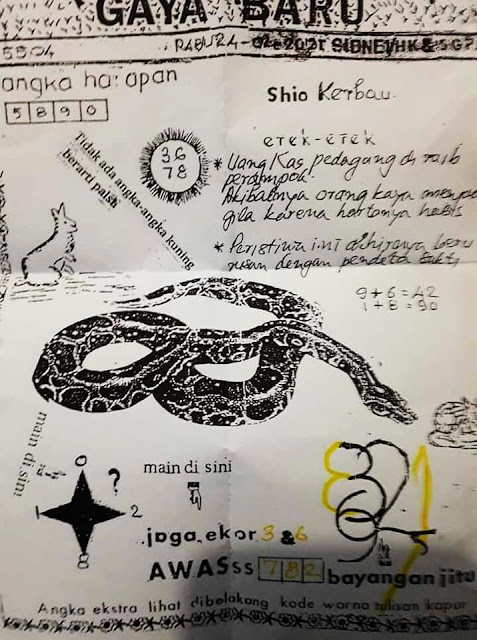 GAYA BARU
5504
RABU 24-2021 SIDNEY HK & SGP
angka harapan
5 8 9 0
Shio Kerbau
36
78
Tidak ada angka angka kuning
berarti palsu
ETEK-ETEK
* Uang Kas pedagang di raib
perampok
Akibatnya orang kaya
gila karena hartanya habis
* Peristiwa ini dengan pendeta sakti
9+6=42
1+8=90
main di sini
0
?
1 2
8
main di sini
jaga.ekor 3 & 6
AWASss 7 8 2 bayangan jitu
Angka ekstra lihat dibelakang kode warna tulisan kapur